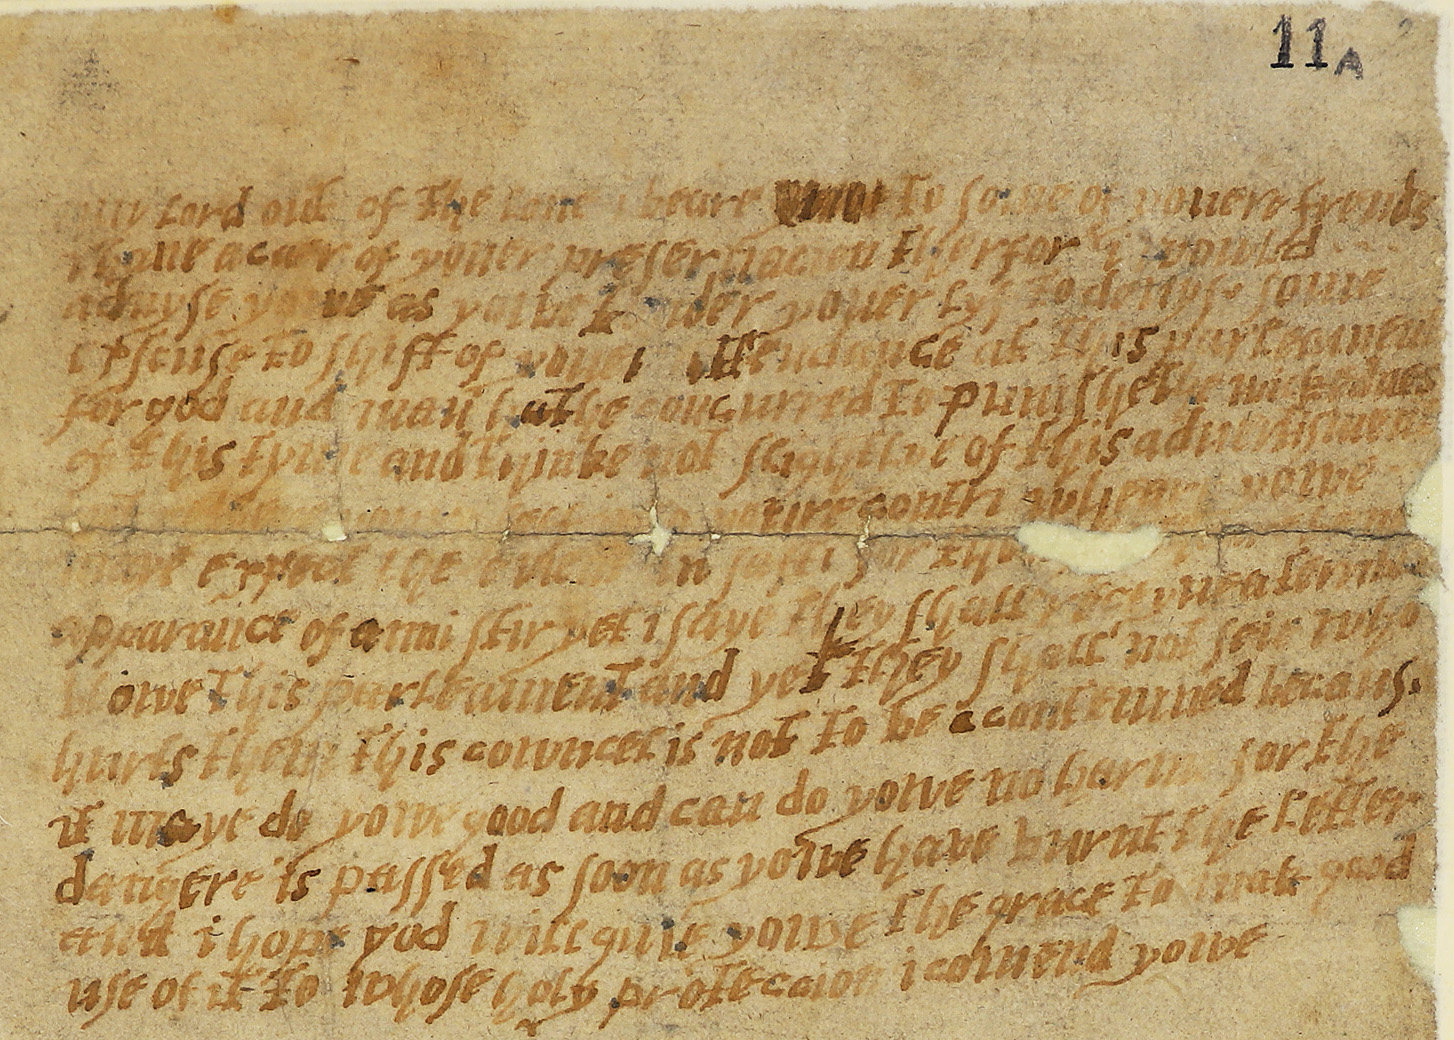 11A
my lord out of the love i beare to some of youere frends
i have a caer of youer preservacion therfor i would
advyse yowe as yowe tender youer lyf to devys some
exscuse to shift of youer attendance at this parleament
for god and man hathe concurred to punishe the wickednes
of this tyme and thinke not slightlye of this advertisment
youre contri wheare yowe
maye expect the event in safti for thowghe
apparance of anni stir yet i saye they shall receyve a terribel
blowe this parleament and yet they shall not seie who
hurts them this cowncel is not to be acontemned because
it maye do yowe good and can do yowe no harme for the
dangere is passed as soon as yowe have burnt the letter
and i hope god will give yowe the grace to mak good
use of it to whose holy proteccion i comend yowe